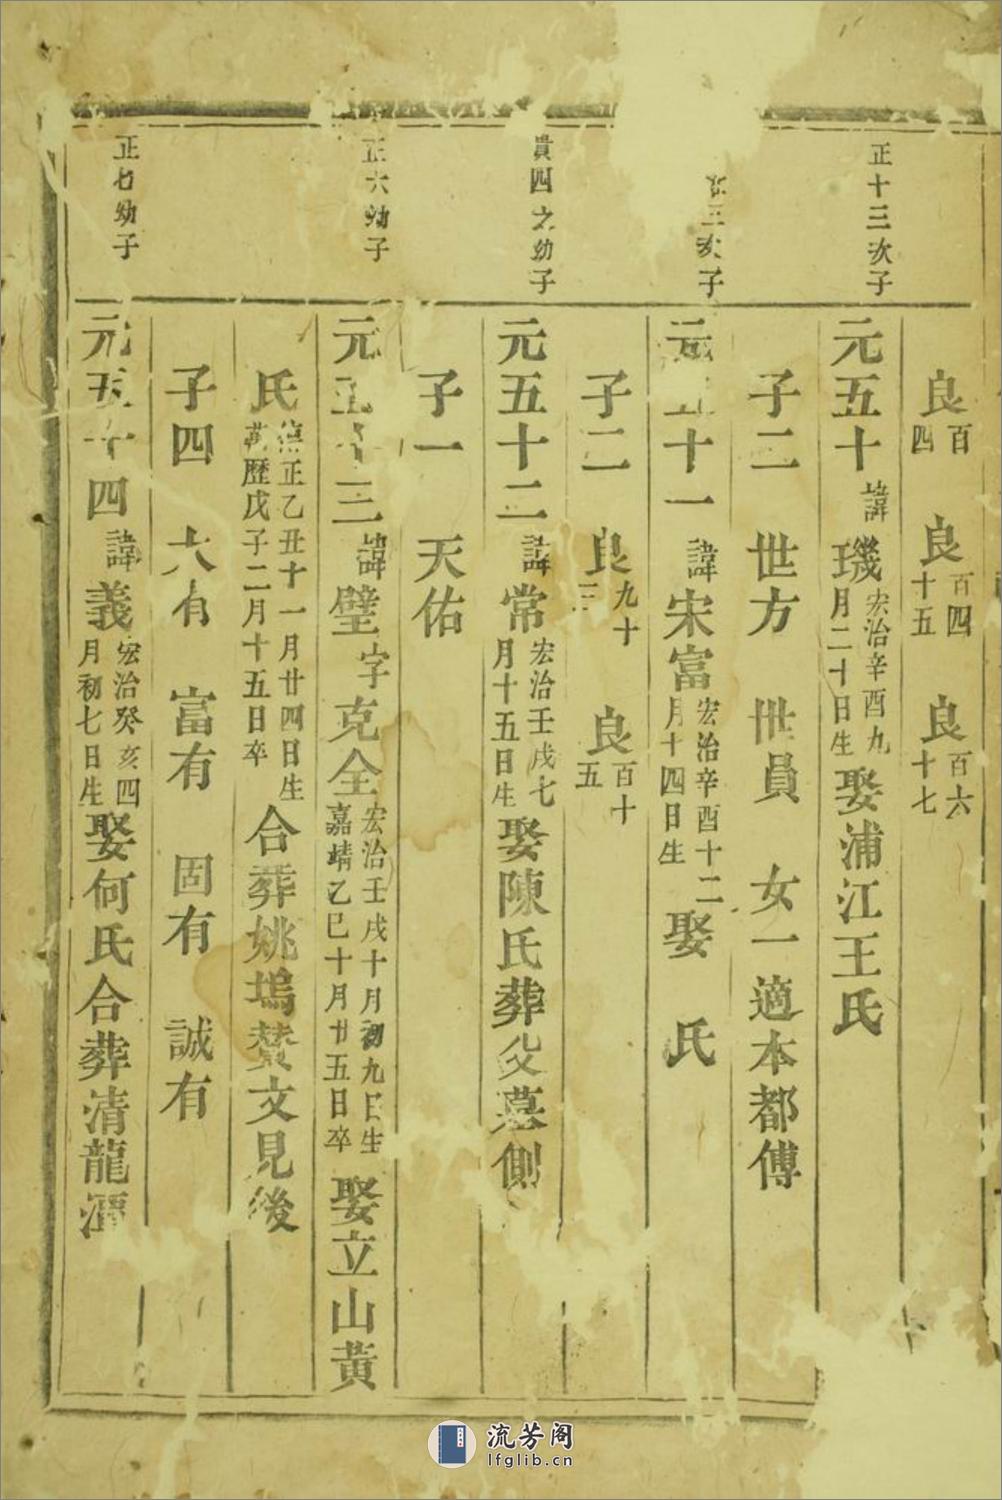 良百四 良百四十五 良百六十七
正十三次子
元五十諱璣宏治辛酉九月二十日生娶浦江王氏
子二 世方 世員 女一適本都傅
三次子
十一諱宋富宏治辛酉十二月十四日生娶 氏
子二 良九十三 良百十五
貴四之幼子
元五十二諱常宏治壬戌七月十五日生娶陳氏葬父墓側
子一 天佑
正六幼子
元五十三諱璧字克全宏治壬戌十月初九日生嘉靖乙巳十月廿五日卒娶立山黃
氏正乙丑十一月廿四日生萬歷戊子二月十五日卒合葬姚塢贊文見後
子四 大有 富有 固有 誠有
正七幼子
元五十四諱義宏治癸亥四月初七日生娶何氏合葬清龍潭
流芳阁
lfglib.cn